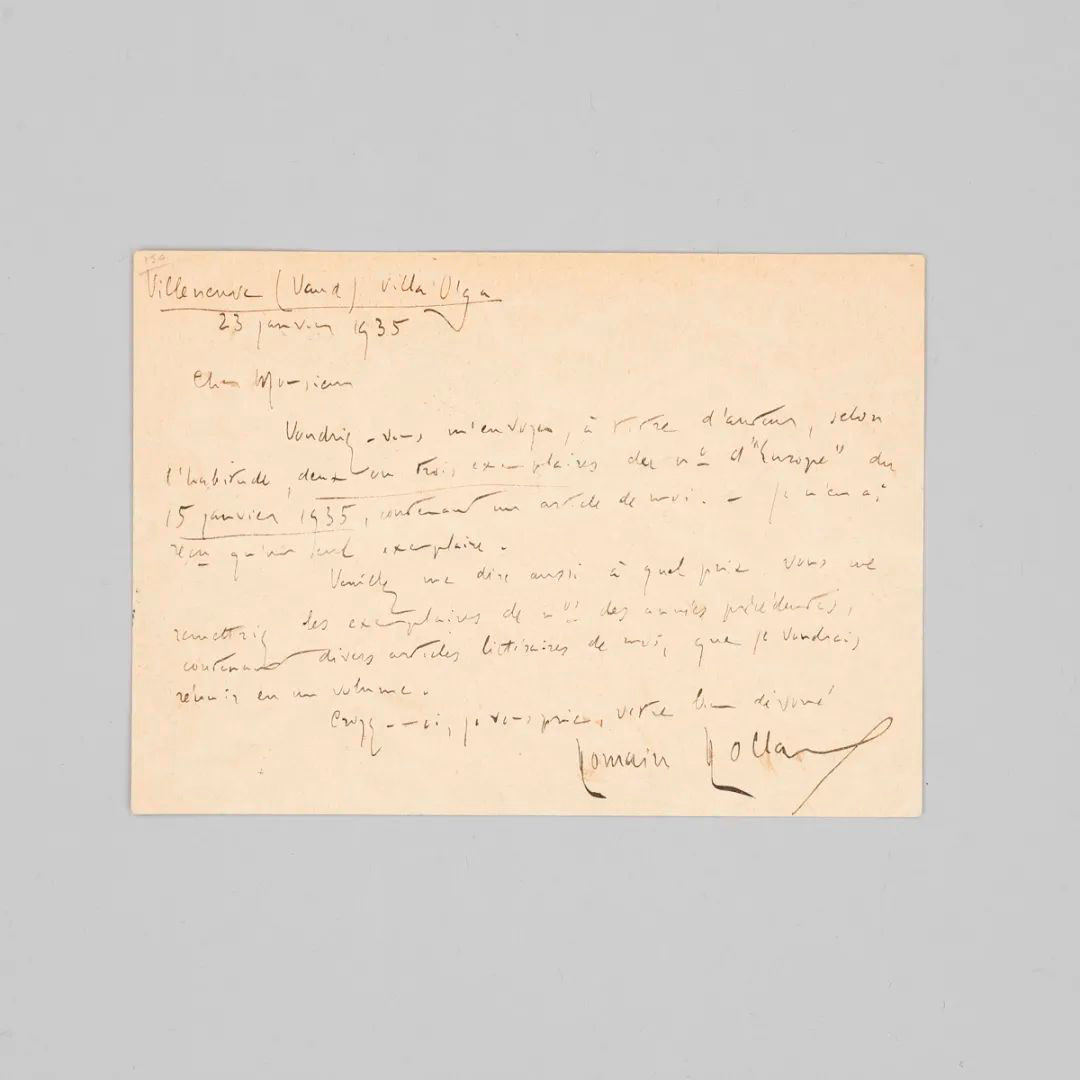 154
Villeneuve (Vaud) villa Olga
23 janvier 1935
Cher Monsieur
Voudriez-vous m'envoyer, à titre d'auteur, selon
l'habitude, deux ou trois exemplaires du nº d'"Europe" du
15 janvier 1935, contenant un article de moi. — Je n'en ai
reçu qu'un seul exemplaire.
Veuillez me dire aussi à quel prix vous me
remettriez les exemplaires de nºs des années précédentes,
contenant divers articles littéraires de moi, que je voudrais
réunir en un volume.
Croyez-moi, je vous prie, votre bien dévoué
Romain Rolland